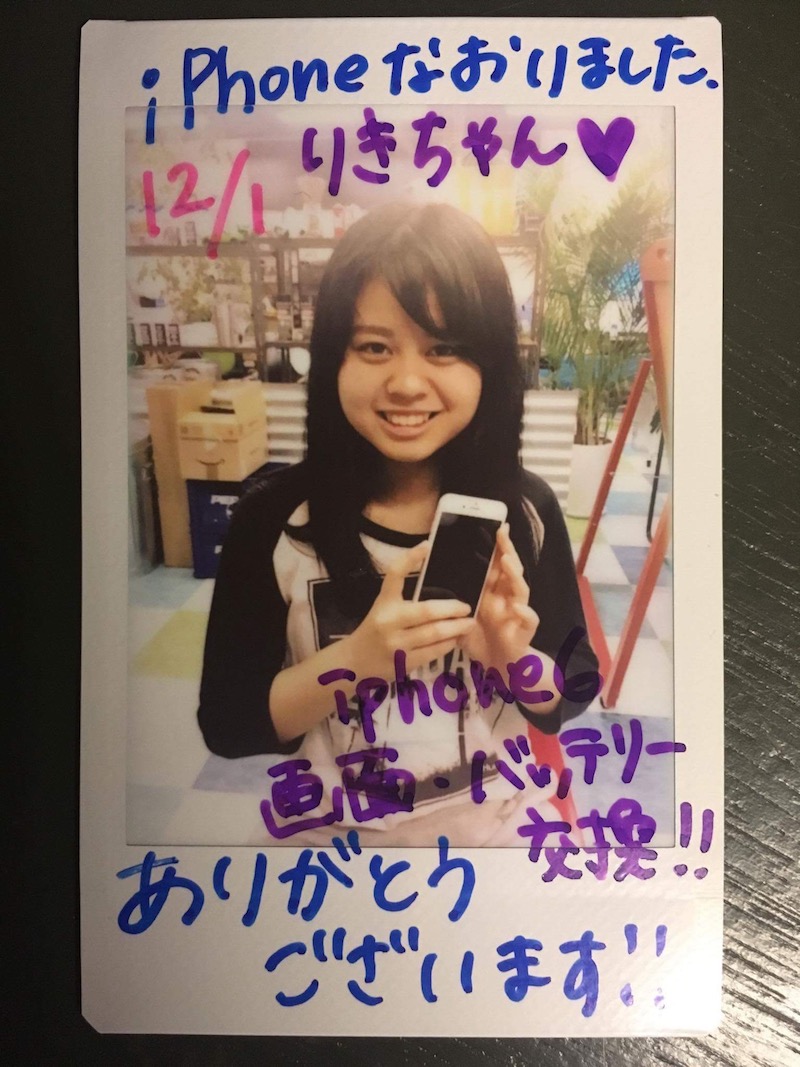 iPhoneなおりました.
りきちゃん♥
12/1
iphone6
画面・バッテリー
交換!!
ありがとう
ございます!!